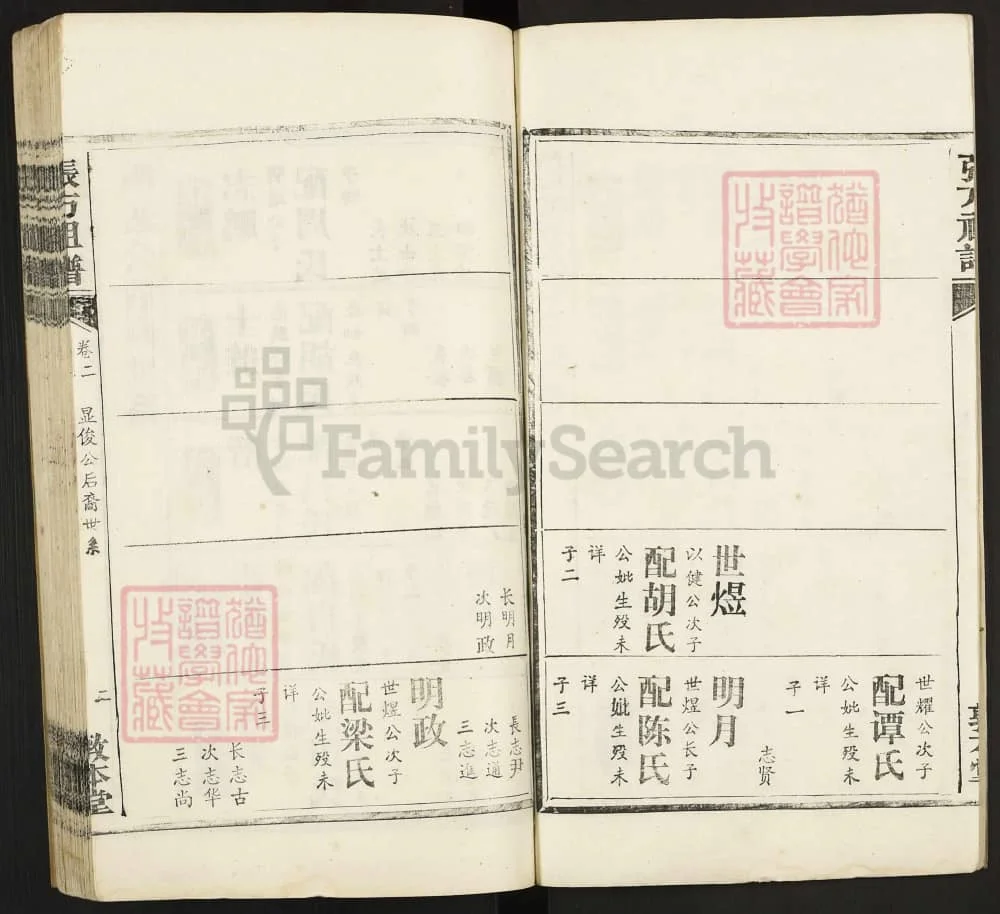 世煜
以健公次子
配胡氏
公妣生殁未
详
子二
世耀公次子
配谭氏
公妣生殁未
详
子一
志贤
明月
世煜公长子
配陈氏
公妣生殁未
详
子三
長志尹
次志道
三志進
长明月
次明政
明政
世煜公次子
配梁氏
公妣生殁未
详
子三
长志古
次志华
三志尚
張氏祖譜
卷二
显俊公后裔世系
二
敦本堂
FamilySearch
譜學會
收藏
譜學會
收藏